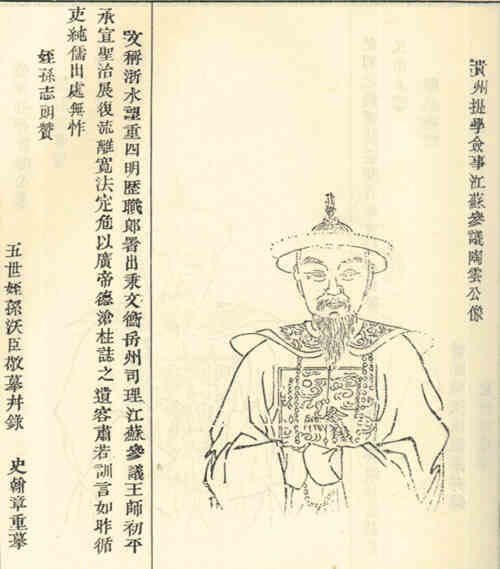 貴州提學僉事江蘇參議陶雲公像
文稱浙水望重四明歷職郞署出秉文衡岳州司理江蘇參議王師初平
承宣聖治展復流離寬法定危以廣帝德滄柱誌之遺容肅若訓言如昨循
吏純儒出處無怍
姪孫志朗贊
五世姪孫沃臣敬摹幷錄
史翰章重摹